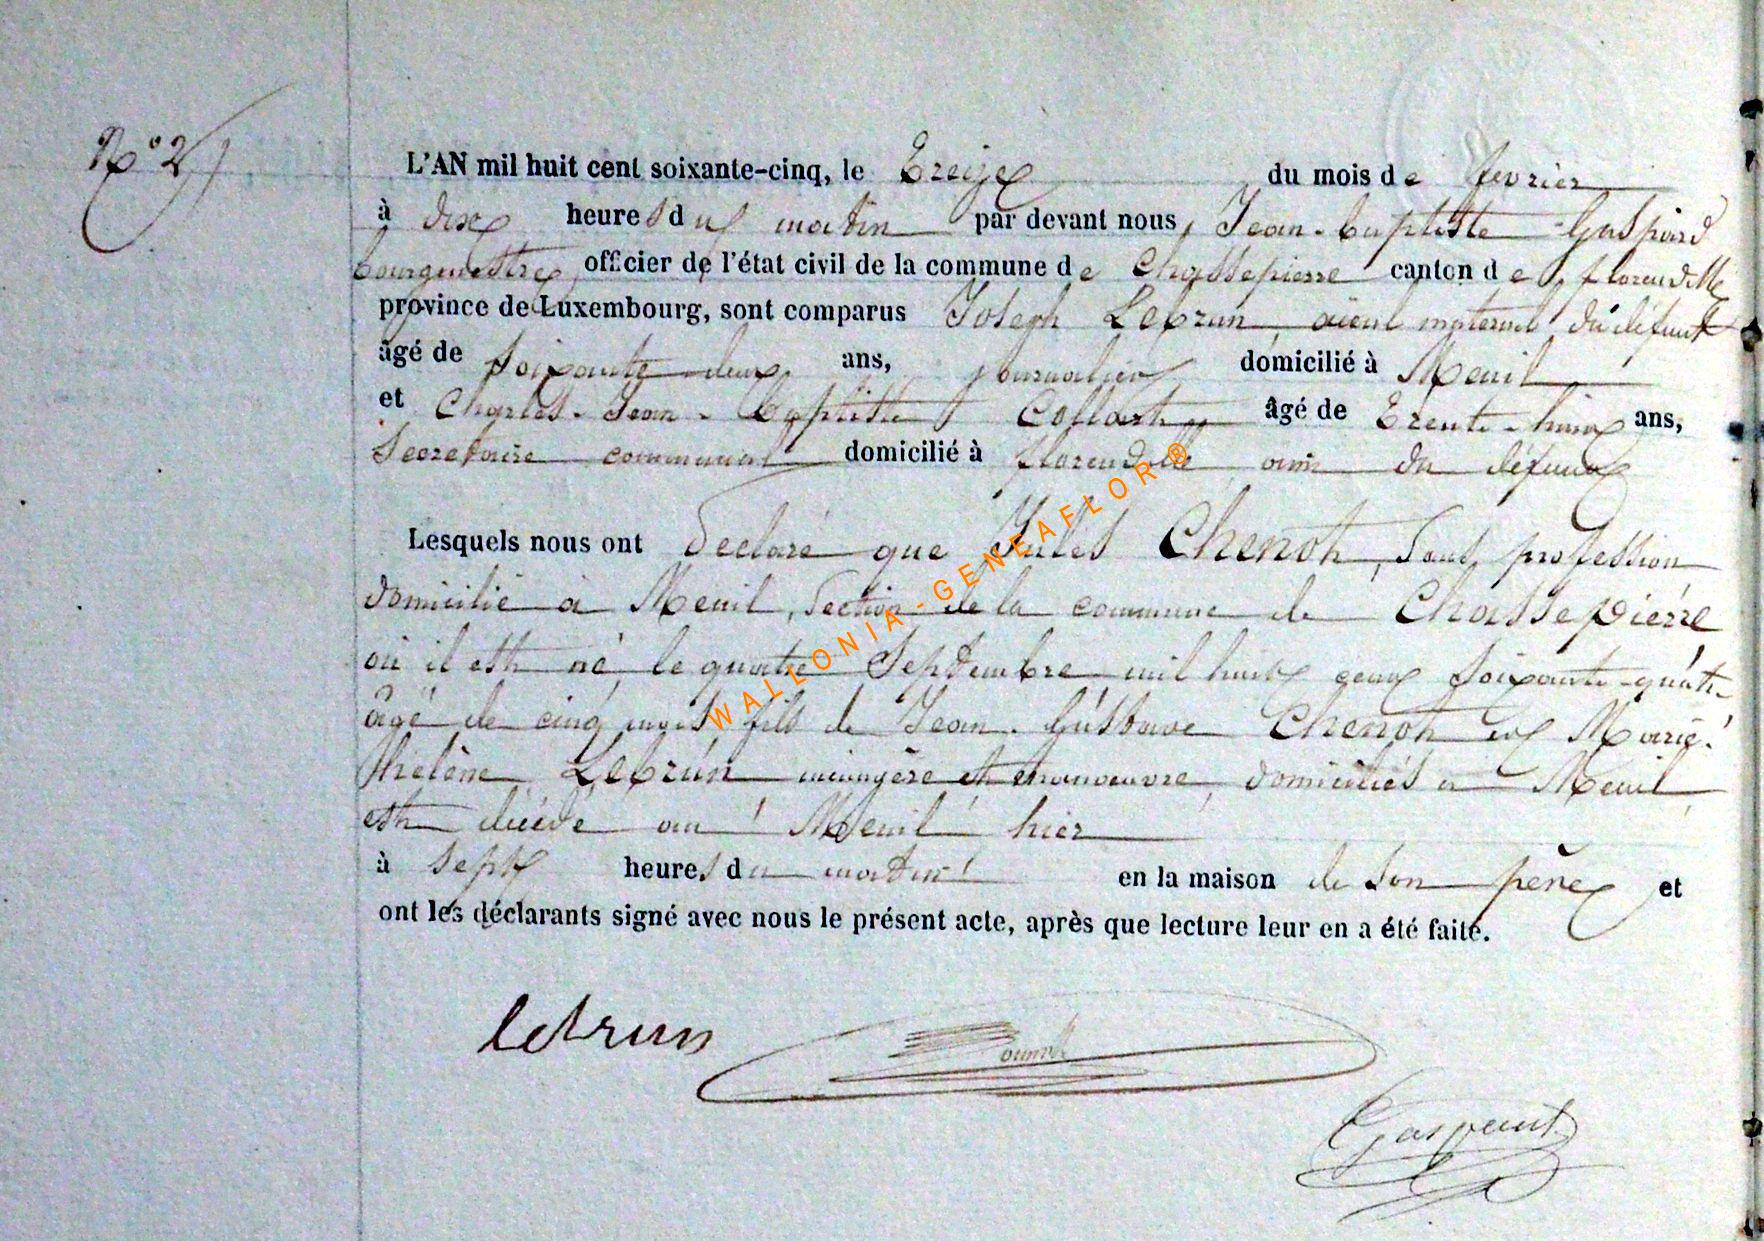 N° 2
L'AN mil huit cent soixante-cinq, le Treize du mois de fevrier
à dix heures du matin par devant nous, Jean-baptiste Gaspard
bourgmestre officier de l'état civil de la commune de Chassepierre canton de florenville
province de Luxembourg, sont comparus Joseph Lebrun aieul maternel du défunt
âgé de soixante-deux ans, journalier domicilié à Menil
et Charles-Jean-baptiste Collart âgé de Trente-huit ans,
Secretaire communal domicilié à florenville ami du défunt
Lesquels nous ont declaré que Jules Chenot, sans profession
domicilié à Menil, Section de la commune de Chassepierre
où il est né le quatre Septembre mil huit cent soixante-quatre
âgé de cinq mois fils de Jean-Gustave Chenot et Marie-
thélène Lebrun ménagère et manoeuvre, domiciliés à Menil
est décédé au Menil hier
à sept heures du matin en la maison de son père et
ont les déclarants signé avec nous le présent acte, après que lecture leur en a été faite.
lebrun
Gaspard
WALLONIA-GENEAFLOR®